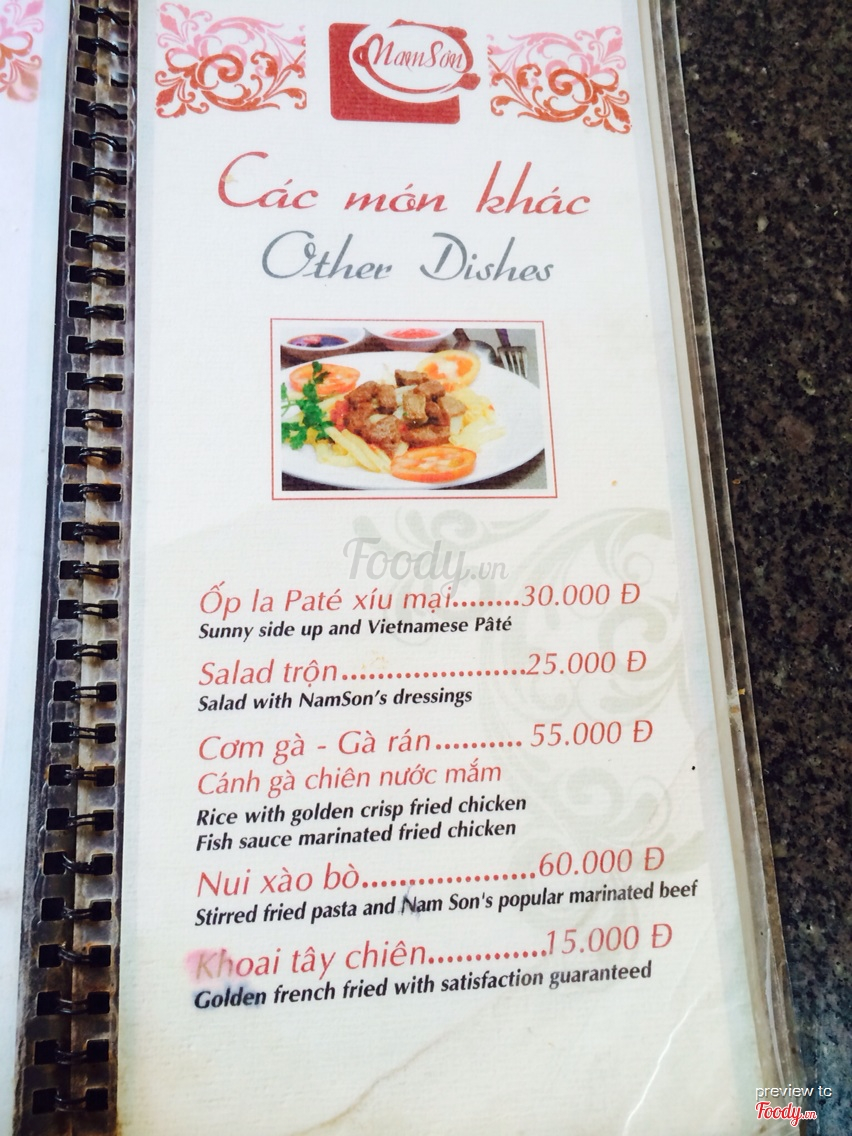 NamSơn
Các món khác
Other Dishes
Foody.vn
Ốp la Paté xíu mại........30.000 Đ
Sunny side up and Vietnamese Pâté
Salad trộn........................25.000 Đ
Salad with NamSon's dressings
Cơm gà - Gà rán.......... 55.000 Đ
Cánh gà chiên nước mắm
Rice with golden crisp fried chicken
Fish sauce marinated fried chicken
Nui xào bò....................60.000 Đ
Stirred fried pasta and Nam Son's popular marinated beef
Khoai tây chiên.............15.000 Đ
Golden french fried with satisfaction guaranteed
preview tc
Foody.vn